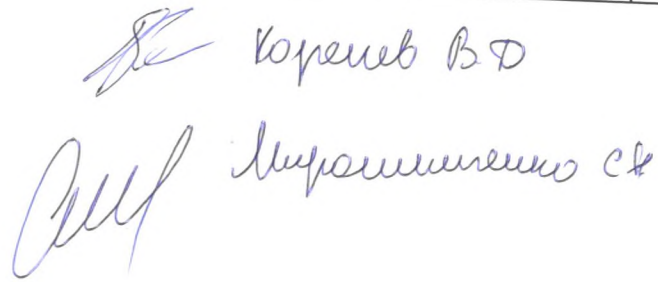 Коренев В.Д
Мирошниченко С